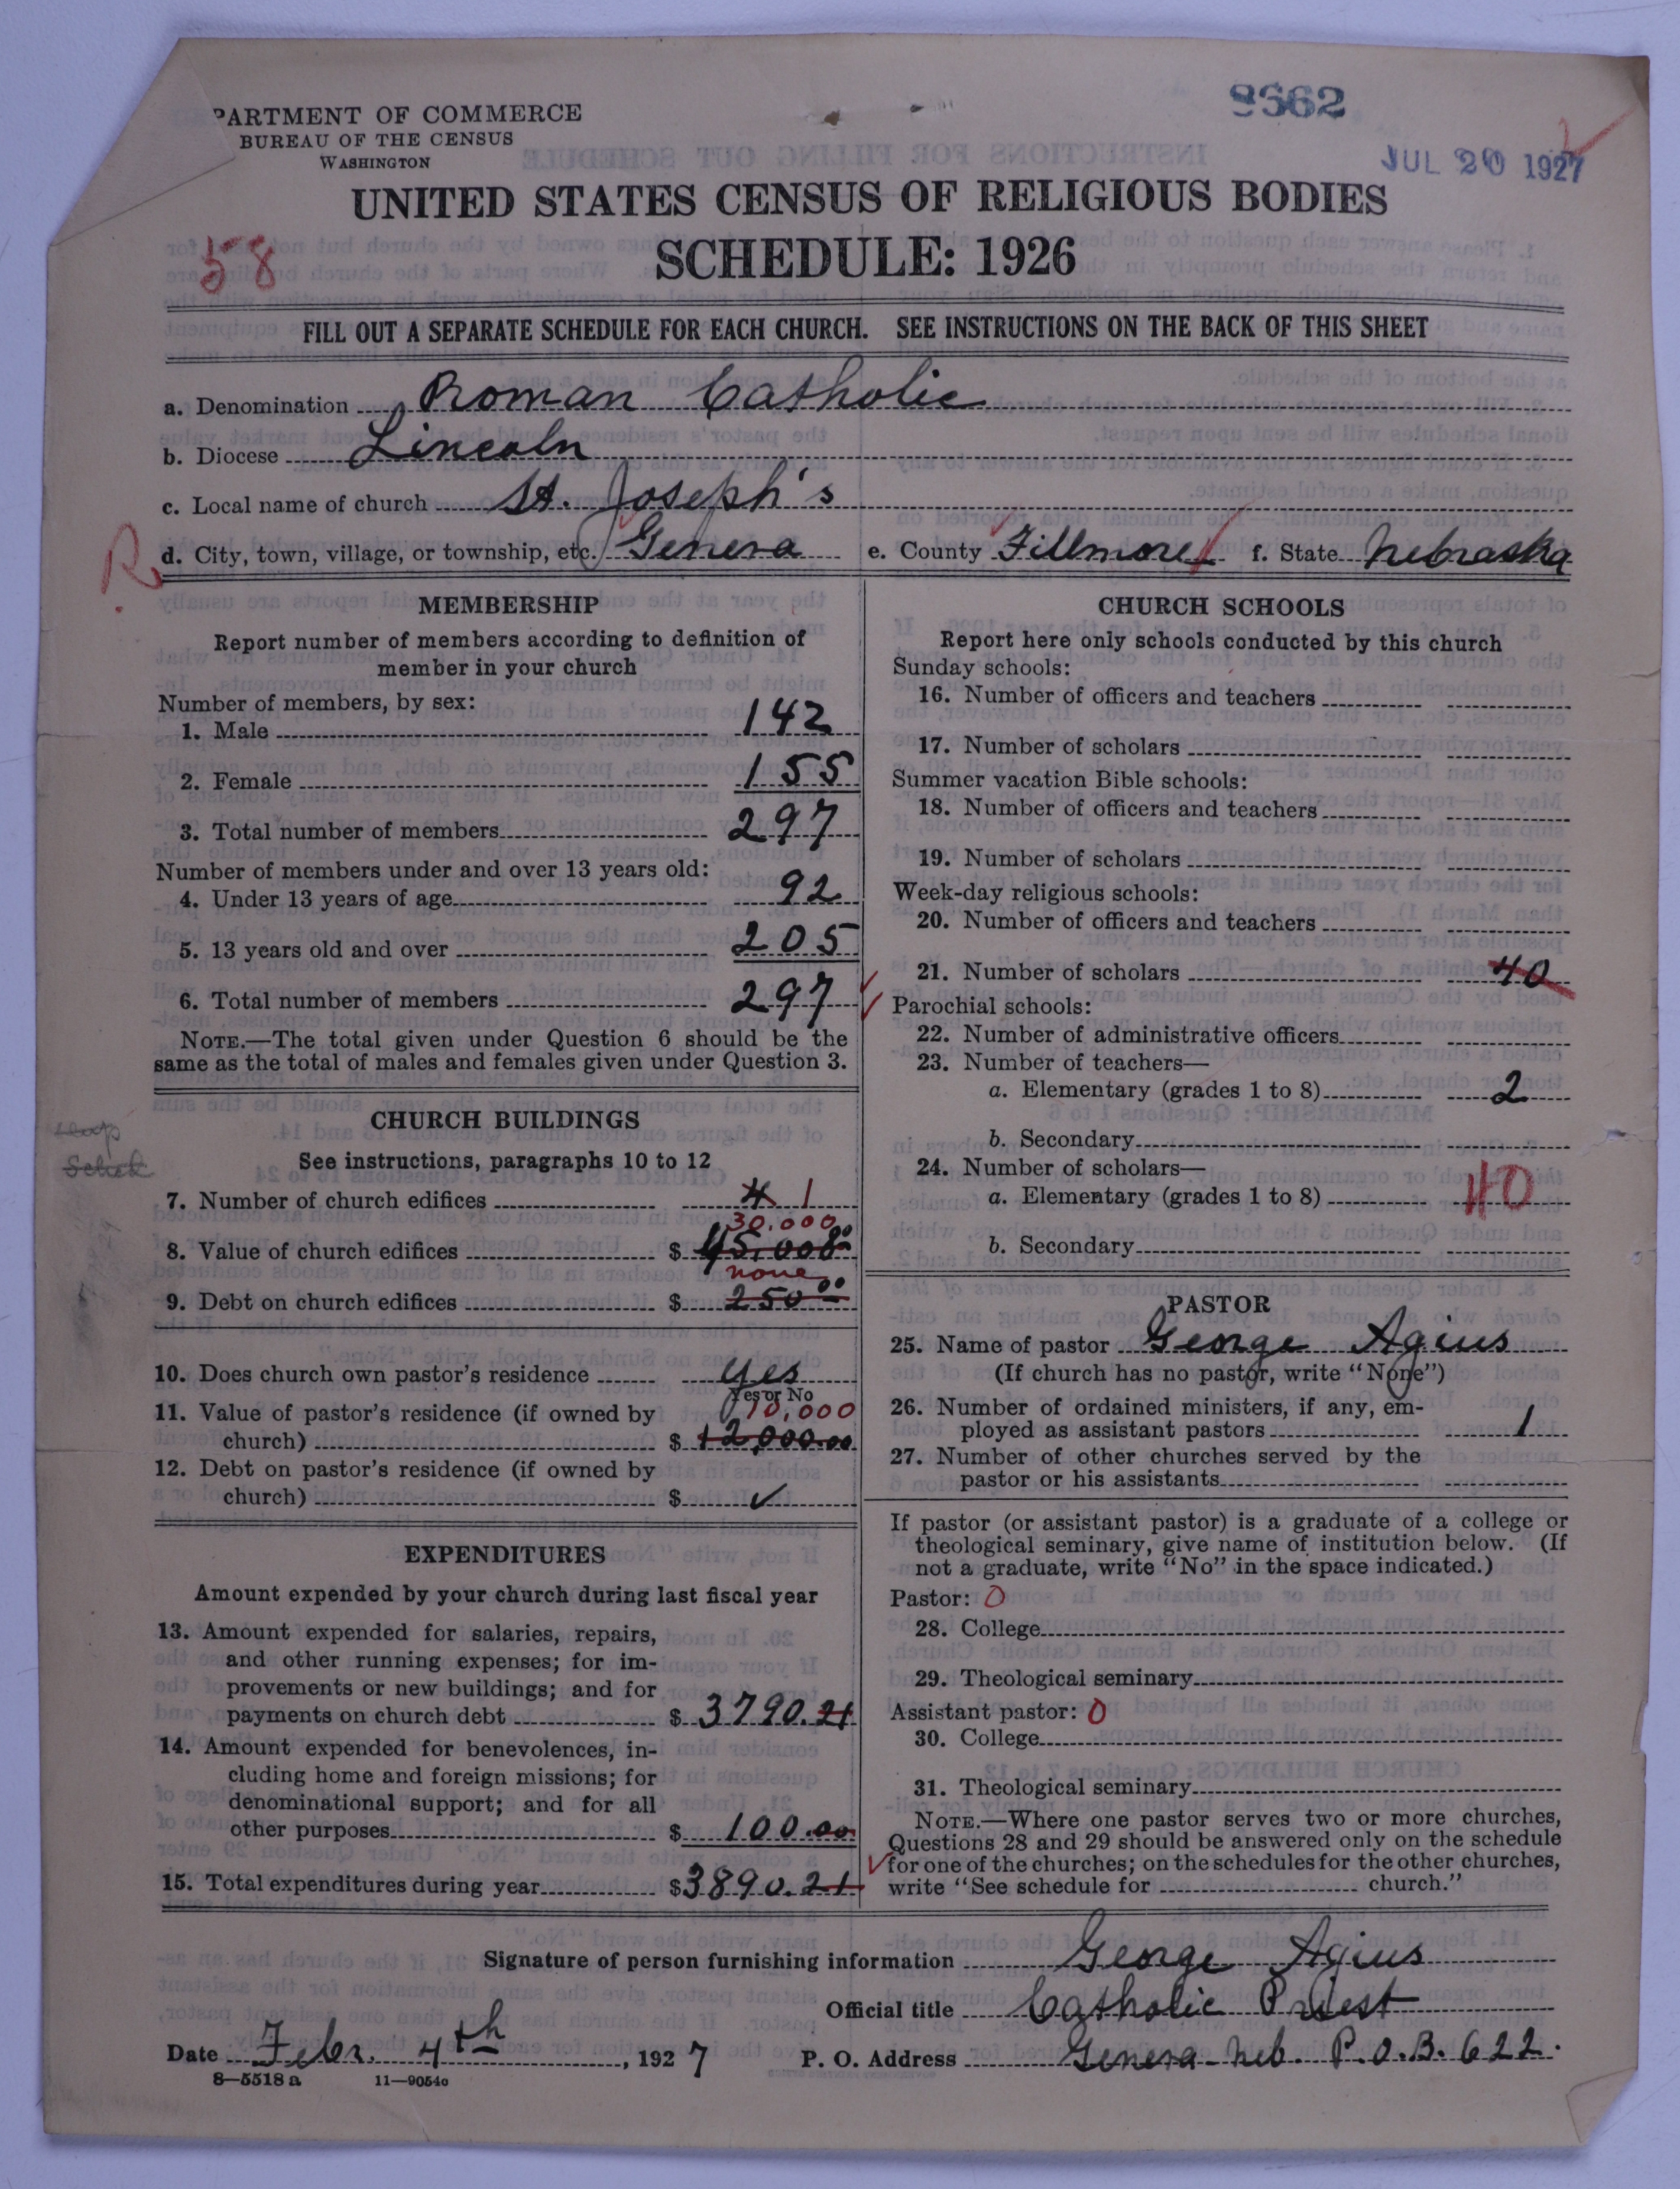 PARTMENT OF COMMERCE
BUREAU OF THE CENSUS
WASHINGTON
8562
JUL 20 1927
UNITED STATES CENSUS OF RELIGIOUS BODIES
SCHEDULE: 1926
58
FILL OUT A SEPARATE SCHEDULE FOR EACH CHURCH. SEE INSTRUCTIONS ON THE BACK OF THIS SHEET
a. Denomination Roman Catholic
b. Diocese Lincoln
c. Local name of church St. Joseph's
R d. City, town, village, or township, etc. Geneva e. County Fillmore f. State Nebraska
MEMBERSHIP
Report number of members according to definition of
member in your church
Number of members, by sex:
1. Male 142
2. Female 155
3. Total number of members 297
Number of members under and over 13 years old:
4. Under 13 years of age 92
5. 13 years old and over 205
6. Total number of members 297
NOTE.—The total given under Question 6 should be the
same as the total of males and females given under Question 3.
CHURCH BUILDINGS
See instructions, paragraphs 10 to 12
7. Number of church edifices 4 1
30,000
8. Value of church edifices $ 45,000.00
none
9. Debt on church edifices $ 250.00
10. Does church own pastor's residence yes
Yes or No
11. Value of pastor's residence (if owned by 10,000
church) $ 12,000.00
12. Debt on pastor's residence (if owned by
church) $ ✓
EXPENDITURES
Amount expended by your church during last fiscal year
13. Amount expended for salaries, repairs,
and other running expenses; for im-
provements or new buildings; and for
payments on church debt $ 3790.21
14. Amount expended for benevolences, in-
cluding home and foreign missions; for
denominational support; and for all
other purposes $ 100.00
15. Total expenditures during year $ 3890.21
CHURCH SCHOOLS
Report here only schools conducted by this church
Sunday schools:
16. Number of officers and teachers
17. Number of scholars
Summer vacation Bible schools:
18. Number of officers and teachers
19. Number of scholars
Week-day religious schools:
20. Number of officers and teachers
21. Number of scholars 40
Parochial schools:
22. Number of administrative officers
23. Number of teachers—
a. Elementary (grades 1 to 8) 2
b. Secondary
24. Number of scholars—
a. Elementary (grades 1 to 8) 40
b. Secondary
PASTOR
25. Name of pastor George Agius
(If church has no pastor, write "None")
26. Number of ordained ministers, if any, em-
ployed as assistant pastors 1
27. Number of other churches served by the
pastor or his assistants
If pastor (or assistant pastor) is a graduate of a college or
theological seminary, give name of institution below. (If
not a graduate, write "No" in the space indicated.)
Pastor: 0
28. College
29. Theological seminary
Assistant pastor: 0
30. College
31. Theological seminary
NOTE.—Where one pastor serves two or more churches,
Questions 28 and 29 should be answered only on the schedule
for one of the churches; on the schedules for the other churches,
write "See schedule for church."
Signature of person furnishing information George Agius
Official title Catholic Priest
Date Febr. 4th, 1927 P. O. Address Geneva - Neb. P.O.B. 622.
8—5518 a 11—9054o